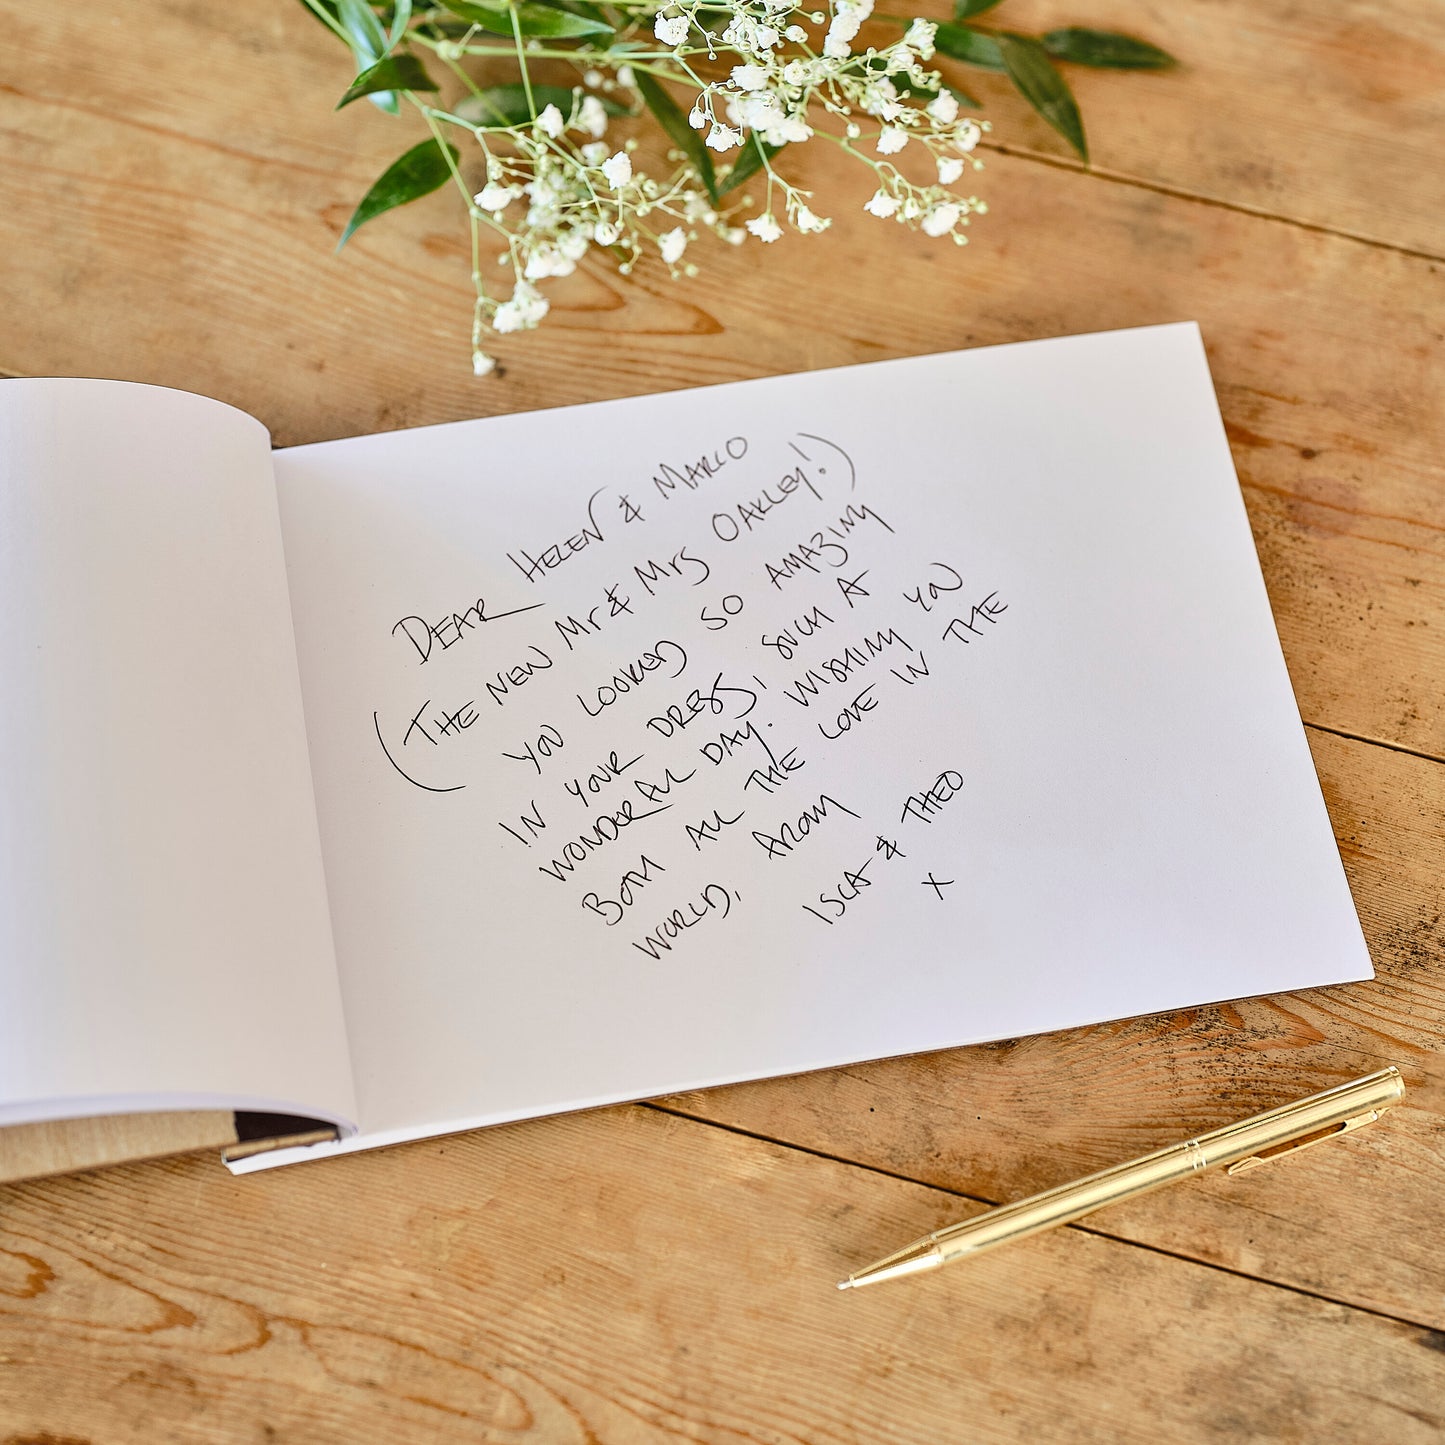 DEAR HELEN & MARCO
(THE NEW Mr & Mrs OAKLEY!)
YOU LOOKED SO AMAZING
IN YOUR DRESS, SUCH A
WONDERFUL DAY. WISHING YOU
BOTH ALL THE LOVE IN THE
WORLD,
ISLA & THEO
X